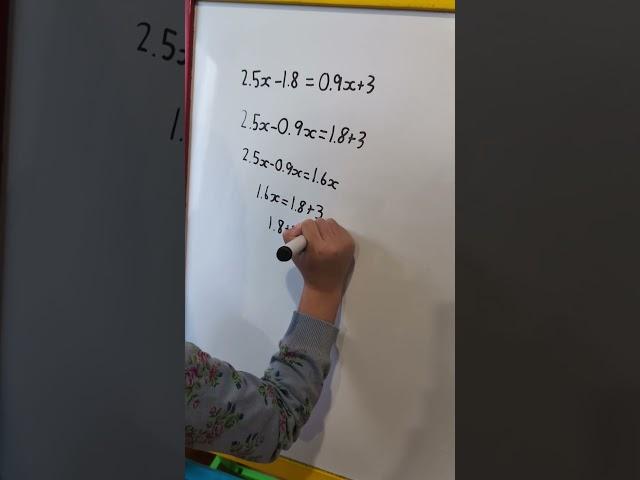 2.5x-1.8=0.9x+3
2.5x-0.9x=1.8+3
2.5x-0.9x=1.6x
1.6x=1.8+3
1.8+